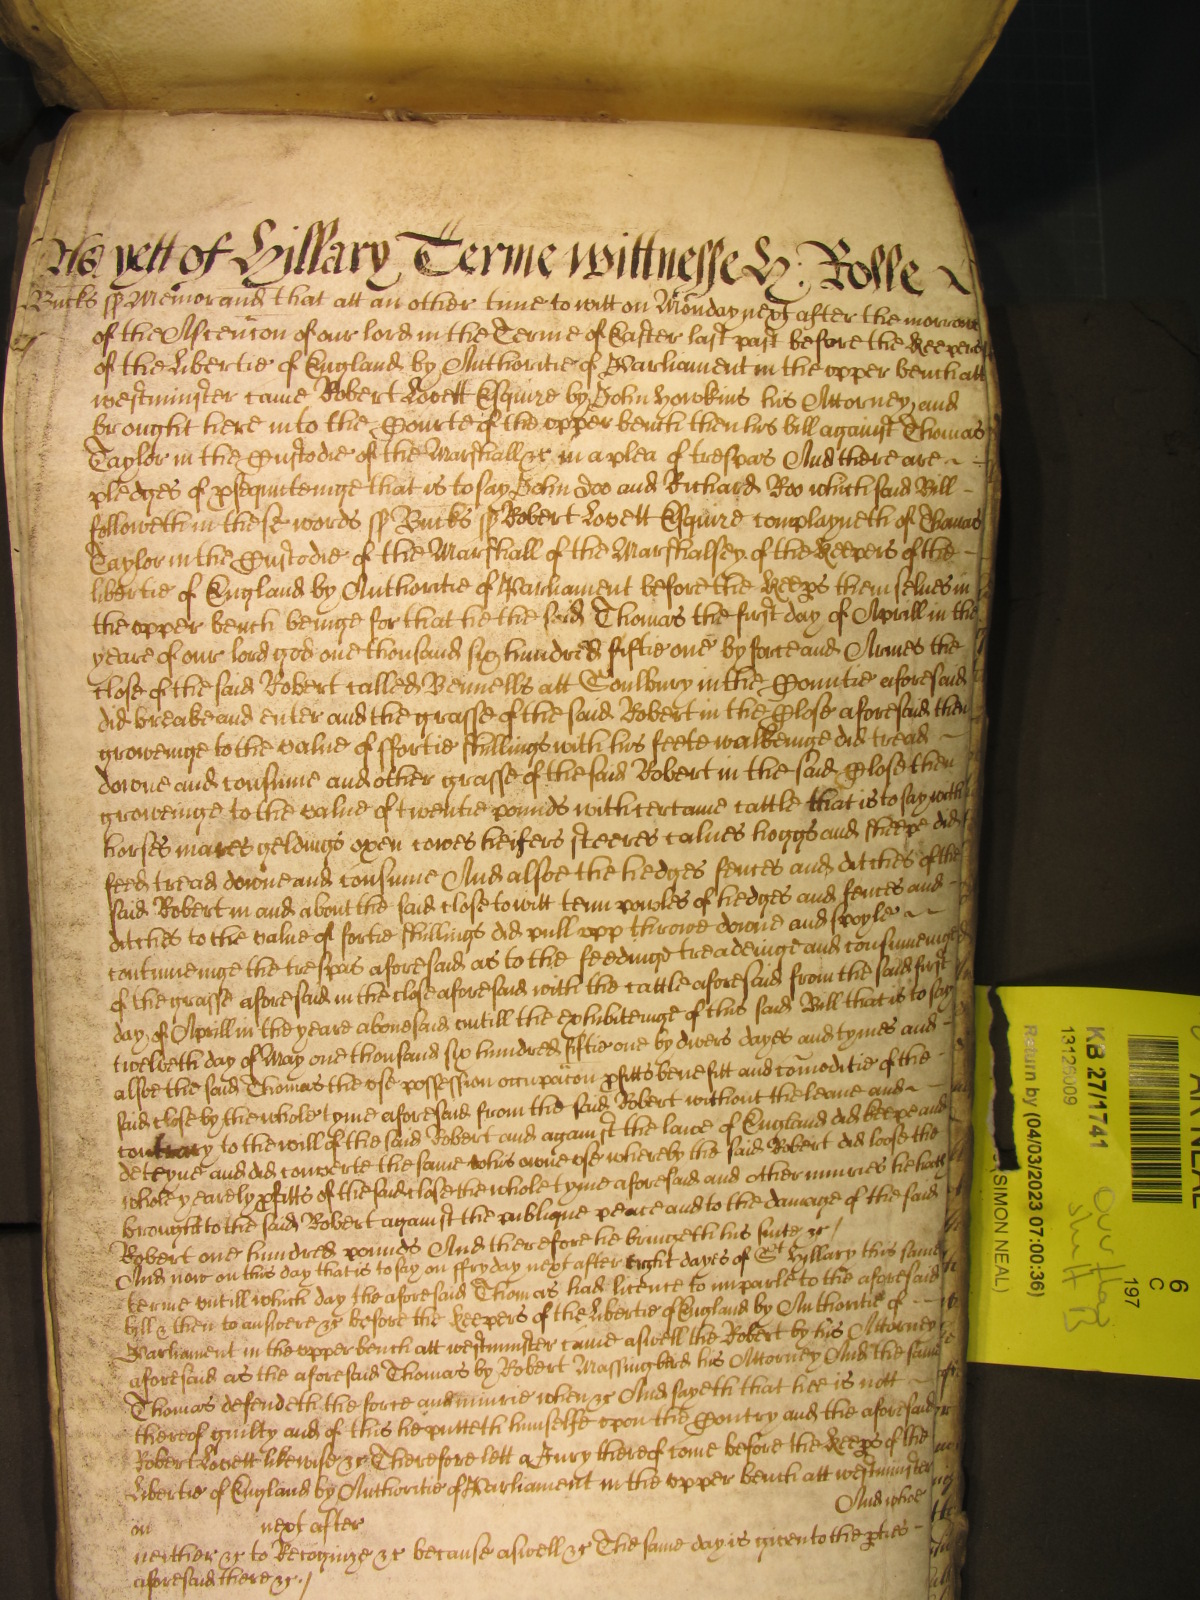 As yett of Hillary Terme wittnesse H: Rolle
Bucks ss Memorand that att an other time to witt on Monday next after the morrowe
of the Ascencon of our lord in the Terme of Easter last past before the Keepers
of the Libertie of England by Authoritie of Parliament in the vpper bench att
westminster came Robert Lovett Esquire by John Howkins his Attorney and
brought here into the Courte of the vpper bench then his bill against Thomas
Taylor in the Custodie of the Marshall &c in a plea of trespas And there are
pledges of psequuteinge that is to say John Doo and Richard Roo which said Bill
followeth in these words ss Bucks ss Robert Lovett Esquire complayneth of Thomas
Taylor in the Custodie of the Marshall of the Marshalsey of the Keepers of the
libertie of England by Authoritie of Parliament before the Keeps themselues in
the vpper bench beinge for that he the said Thomas the first day of Aprill in the
yeare of our lord god one thousand six hundred fiftie one by force and Armes the
close of the said Robert called Bennells att Soulbury in the Countie aforesaid
did breake and enter and the grasse of the said Robert in the Close aforesaid then
groweinge to the value of ffortie shillings with his feete walkeinge did tread
downe and consume and other grasse of the said Robert in the said Close then
groweinge to the value of twentie pounds with certaine cattle that is to say with
horses mares geldings oxen cowes heifers steeres calues hoggs and sheepe did
feed tread downe and consume And alsoe the hedges fences and ditches of the
said Robert in and about the said close to witt tenn powles of hedges and fences and
ditches to the value of fortie shillings did pull vpp throwe downe and spoyle
continueinge the trespas aforesaid as to the feedinge treadeinge and consumeinge
of the grasse aforesaid in the close aforesaid with the cattle aforesaid from the said first
day of Aprill in the yeare abouesaid vntill the exhibiteinge of this said Bill that is to say
twelveth day of May one thousand six hundred fiftie one by divers dayes and tymes and
alsoe the said Thomas the vse possession occupacon pfitts benefitt and comoditie of the
said close by the whole tyme aforesaid from the said Robert without the leaue and
contrary to the will of the said Robert and against the lawe of England did keepe and
deteyne and did converte the same to his owne vse whereby the said Robert did loose the
whole yearely pfitts of the said close the whole tyme aforesaid and other iniuries he hath
brought to the said Robert against the publique peace and to the damage of the said
Robert one hundred pounds And therefore he bringeth his suite &c
And now on this day that is to say on ffryday next after eight dayes of St Hillary this same
terme vntill which day the aforesaid Thomas had licence to imparle to the aforesaid
bill & then to answere &c before the Keepers of the Libertie of England by Authoritie of
Parliament in the vpper bench att westminster came aswell the Robert by his Attorney
aforesaid as the aforesaid Thomas by Robert Massingberd his Attorney And the same
Thomas defendeth the force and iniurie when &c And sayeth that hee is nott
thereof guilty and of this he putteth himselfe vpon the Contry and the aforesaid
Robert Lovett likewise &c Therefore lett a Jury thereof come before the Keeps of the
Libertie of England by Authoritie of Parliament in the vpper bench att westminster
on next after And whoe
neither &c to Recognize &c because aswell &c The same day is given to the pties
aforesaid there &c
KB 27/1741
13126009
Return by (04/03/2023 07:00:36)
(SIMON NEAL)
6
C
197